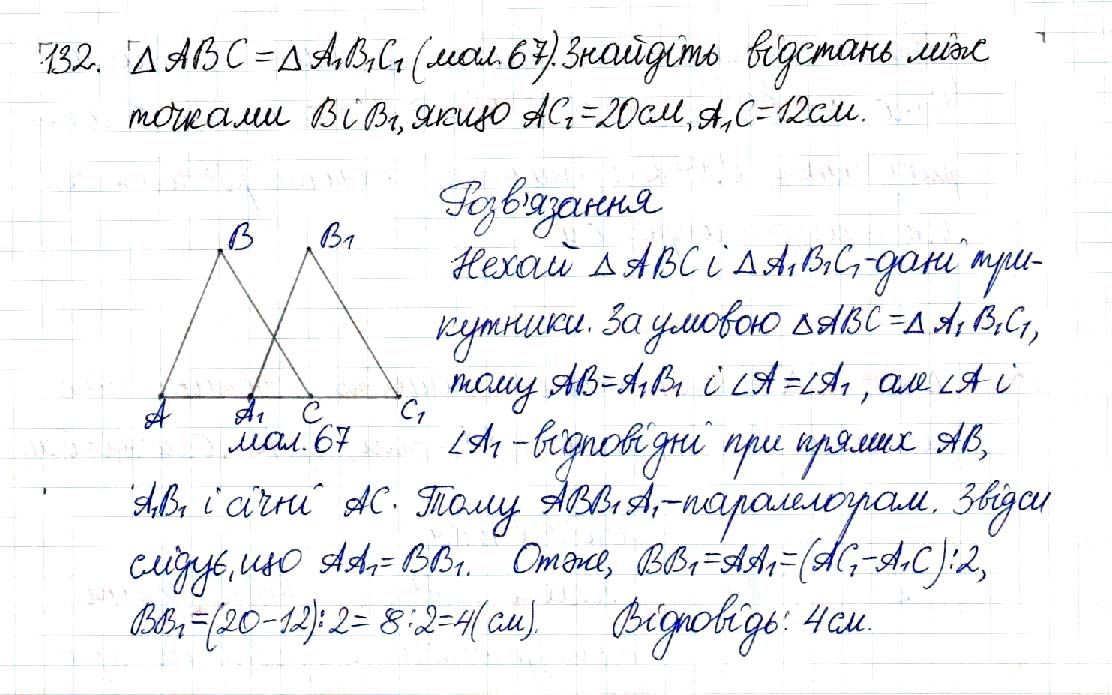 132. △ABC = △A₁B₁C₁ (мал. 67). Знайдіть відстань між
точками B і B₁, якщо AC₁ = 20 см, A₁C = 12 см.
Розв'язання
B B₁
Нехай △ABC і △A₁B₁C₁ - дані три-
кутники. За умовою △ABC = △A₁B₁C₁,
тому AB = A₁B₁ і ∠A = ∠A₁, але ∠A і
A A₁ C C₁
мал. 67
∠A₁ - відповідні при прямих AB,
A₁B₁ і січній AC. Тому ABB₁A₁ - паралелограм. Звідси
слідує, що AA₁ = BB₁. Отже, BB₁ = AA₁ = (AC₁ - A₁C) : 2,
BB₁ = (20 - 12) : 2 = 8 : 2 = 4 (см). Відповідь: 4 см.